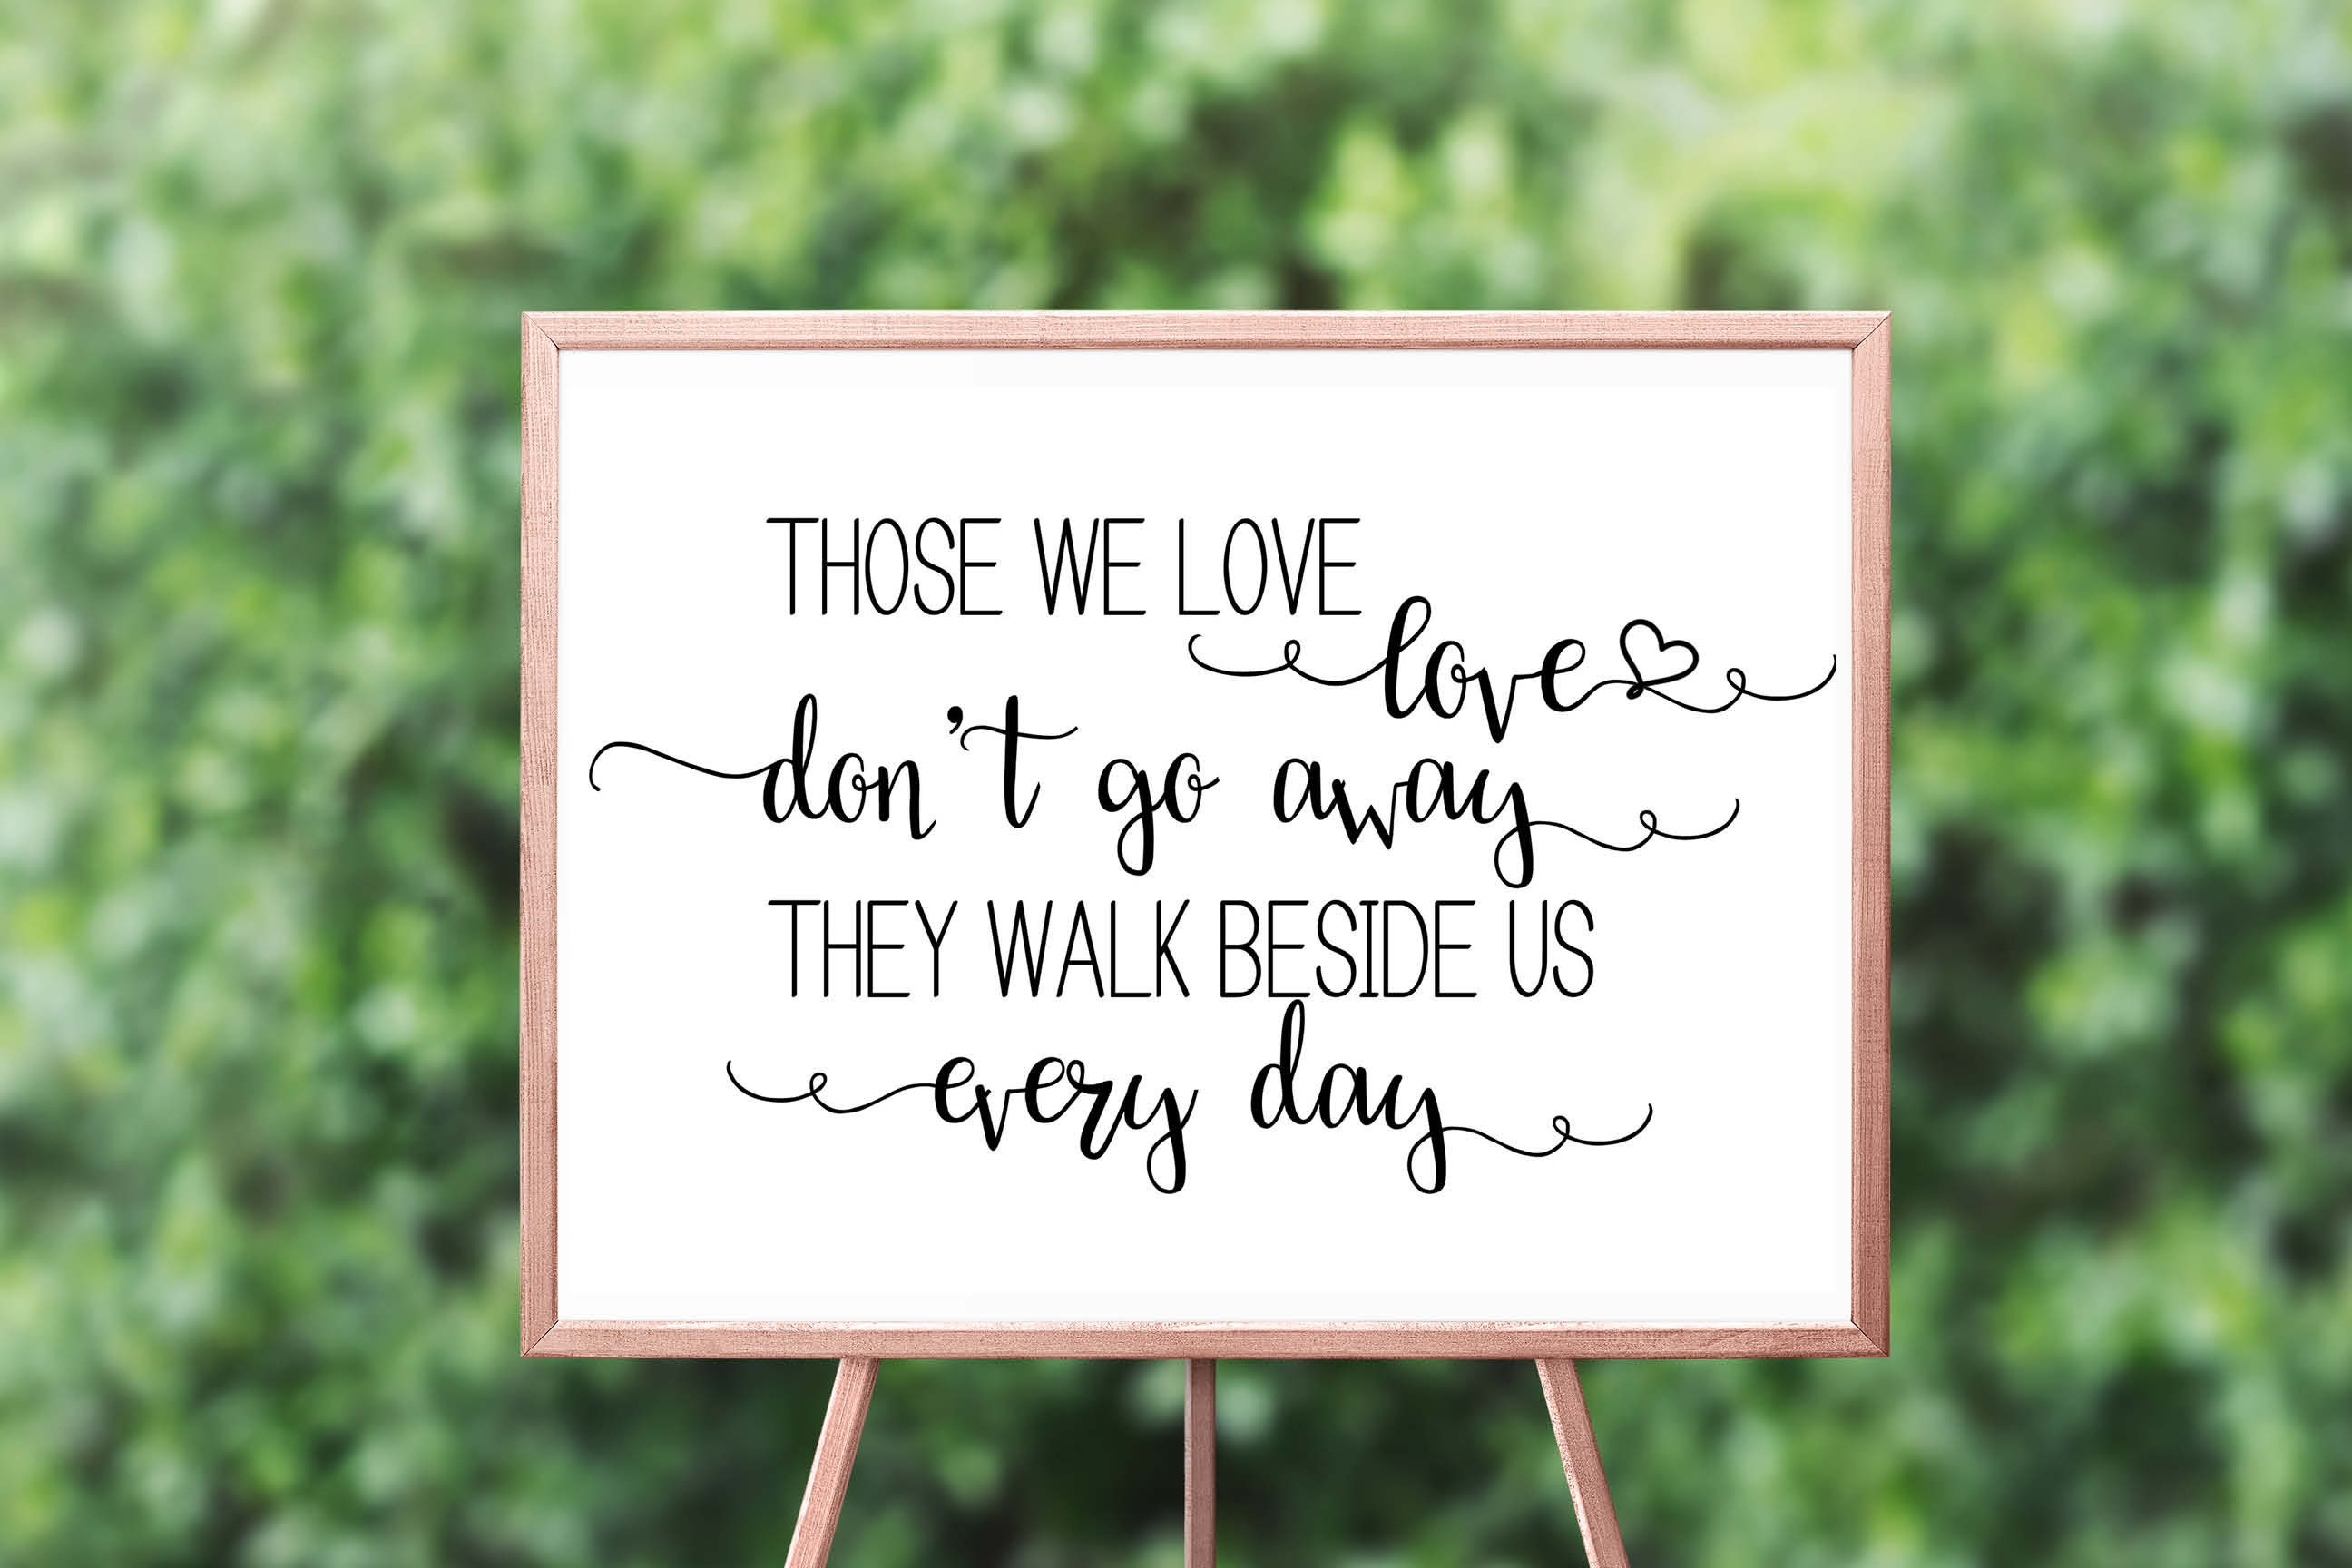 THOSE WE LOVE
love
don't go away
THEY WALK BESIDE US
every day